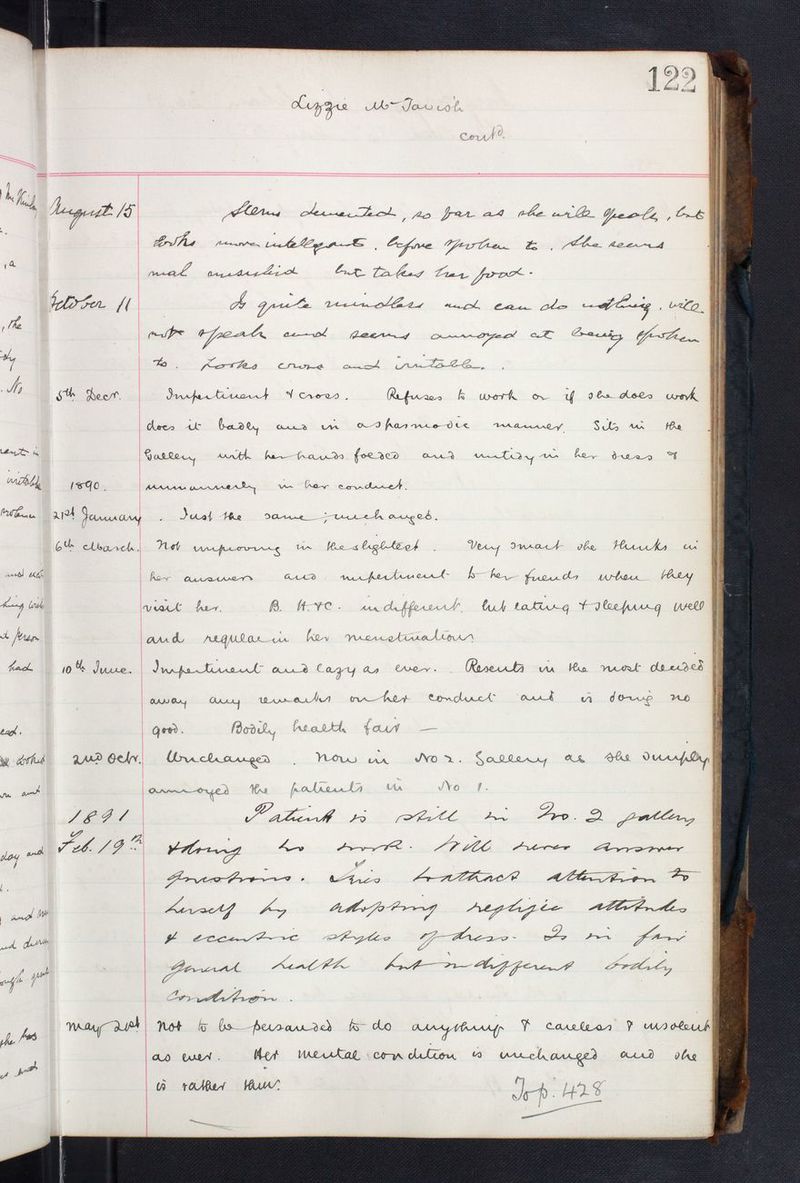 122
Lizzie McTavish
contd.
August 15 Seems demented, so far as she will speak, but
looks more intelligent. before spoken to. She seems
but takes her food.
October 11 Is quite mindless and can do nothing. will
not speak and seems annoyed at being spoken
to. Looks cross and irritable.
5th Decr. Impertinent & cross. Refuses to work or if she does work
does it badly and in a spasmodic manner. Sits in the
Gallery with her hands folded and untidy in her dress &
1890. unmannerly in her conduct.
21st January. Just the same; unchanged.
6th March. Not improving in the slightest. Very smart she thinks in
her answers and impertinent to her friends when they
visit her. B. H. & C. indifferent. but eating & sleeping well
and regular in her menstruation
10th June. Impertinent and lazy as ever. Resents in the most decided
away any remarks on her conduct and is doing no
good. Bodily health fair —
2nd Octr. Unchanged. Now in No 2. Gallery as she simply
annoyed the patients in No 1.
1891 Patient is still in No. 2 gallery
Feb. 19th & doing no work. Will never answer
questions. Tries to attract attention to
herself by adopting negligée attitudes
& eccentric styles of dress. Is in fair
general health but indifferent bodily
condition.
May 21st Not to be persuaded to do anything & careless & insolent
as ever. Her mental condition is unchanged and she
is rather thin.
To p. 428